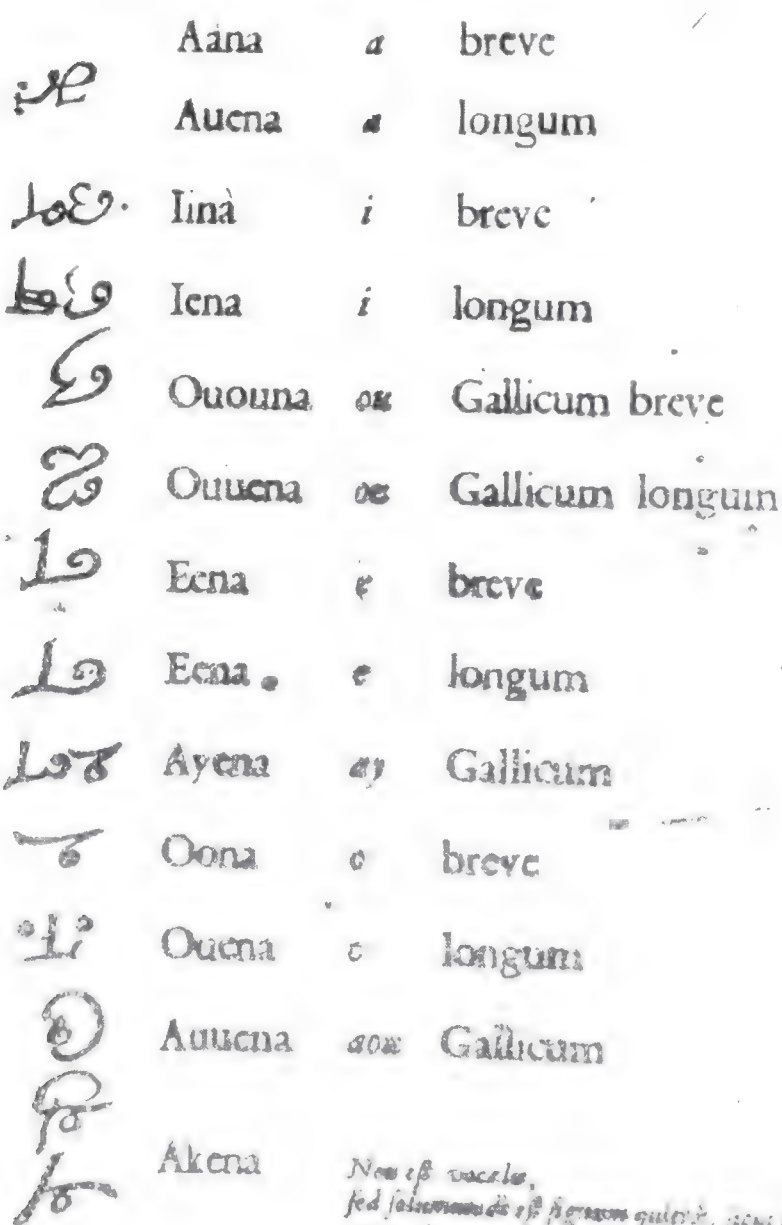 Aána a breve
Auena a longum
Iinà i breve
Iena i longum
Ououna ou Gallicum breve
Ouuena ou Gallicum longum
Eena e breve
Eena e longum
Ayena ay Gallicum
Oona o breve
Ouena longum
Auuena aou Gallicum
Akena
Non est vocalis,
sed est